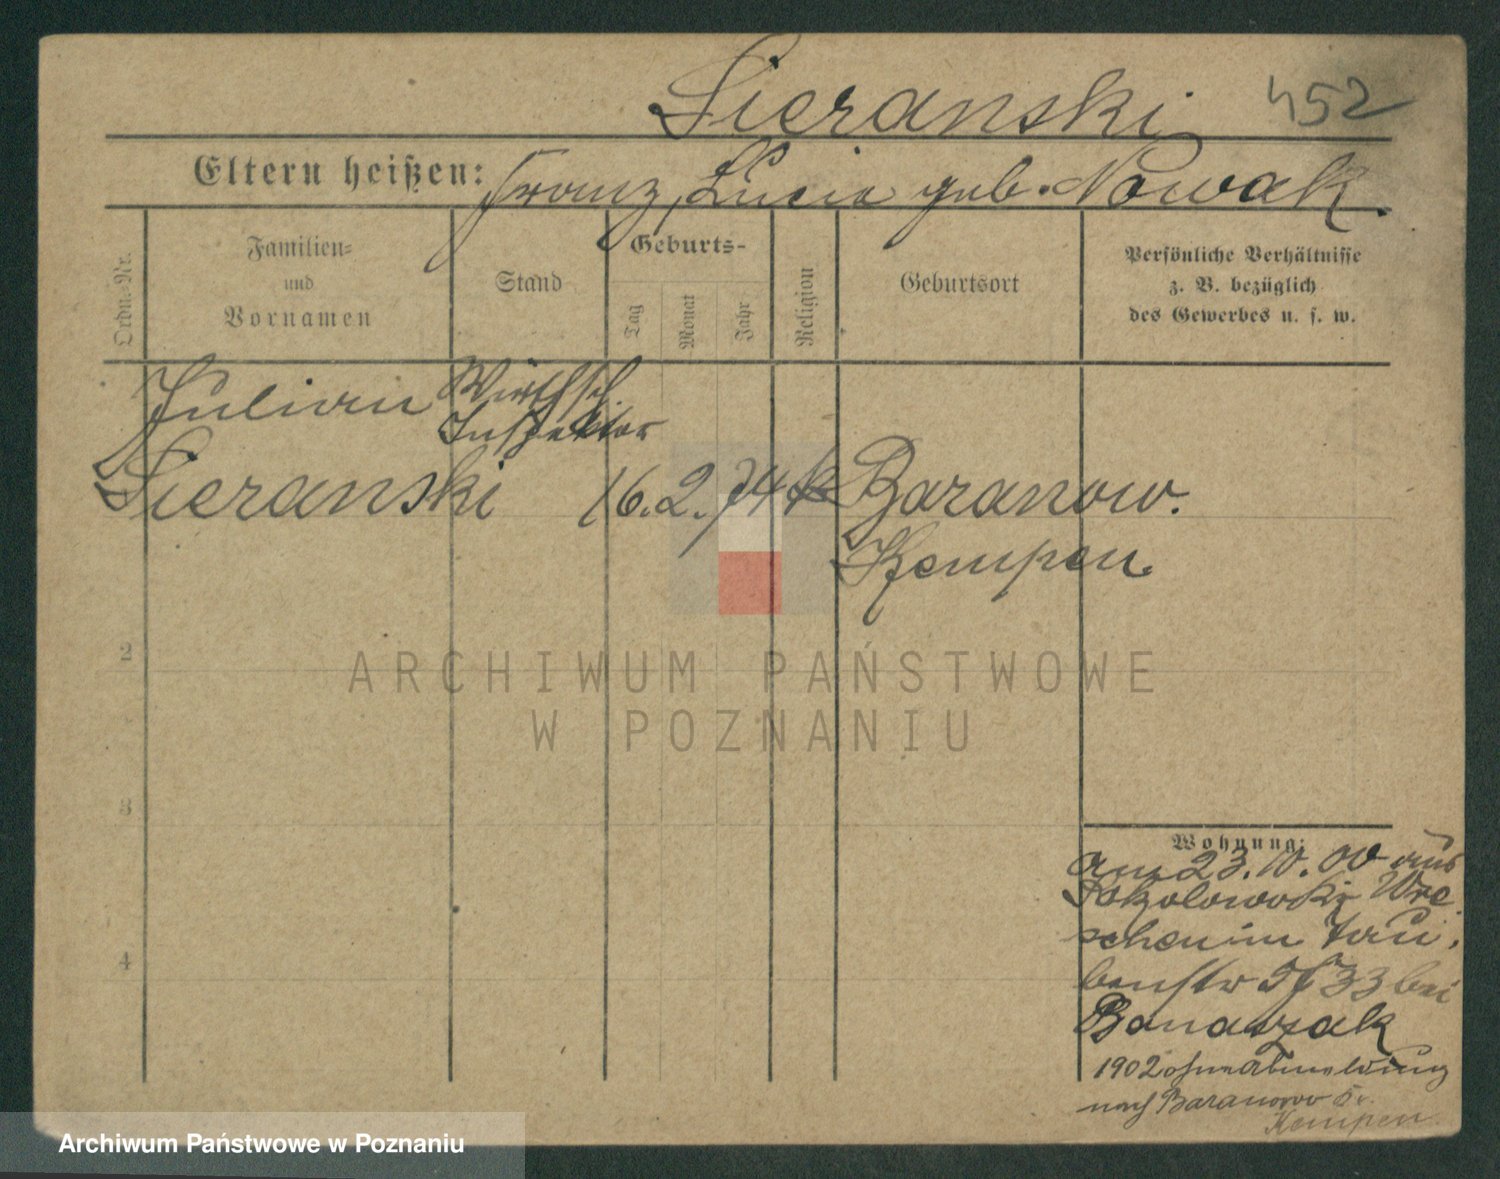 Sieranski 452
Eltern heißen: Franz, Lucia geb. Nowak.
Ordn.-Nr.
Familien-
und
Vornamen
Stand
Geburts-
Tag
Monat
Jahr
Religion
Geburtsort
Persönliche Verhältnisse
z. B. bezüglich
des Gewerbes u. s. w.
Julian
Sieranski
Wirthsch.
Inspektor
16. 2. 74 k
Baranow.
Kempen
2
3
4
Wohnung:
am 23. 10. 00 aus
Sokolowo Kr. Wre
schen in Tau
benstr 33 bei
Banaszak
1902 ohne Abmeldung
nach Baranowo Kr.
Kempen
ARCHIWUM PAŃSTWOWE
W POZNANIU
Archiwum Państwowe w Poznaniu